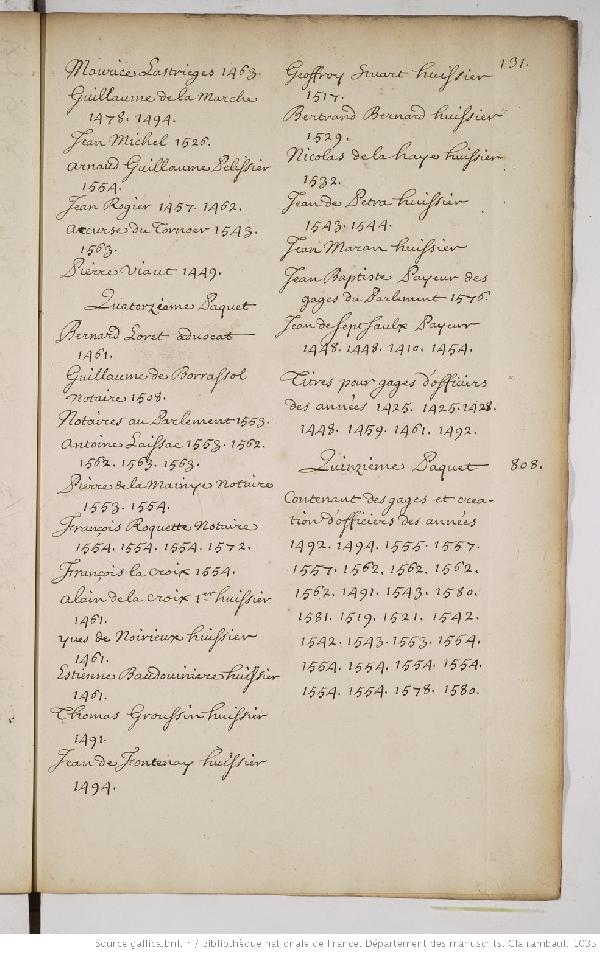 131.
Maurice Lastrieges 1463.
Guillaume de la Marche
1478. 1494.
Jean Michel 1526.
Arnaud Guillaume Pelissier
1554.
Jean Rogier 1457. 1462.
Accurse du Tornoer 1543.
1563.
Pierre Viaut 1449.
Quatorzieme Paquet
Bernard Loret advocat
1461.
Guillaume de Borrassol
Notaire 1508.
Notaires au Parlement 1553.
Antoine Laissac 1553. 1562.
1562. 1563. 1563.
Pierre de la Mainye Notaire
1553. 1554.
François Roquette Notaire
1554. 1554. 1554. 1572.
François la croix 1554.
Alain de la croix 1er huissier
1461.
Yves de Noirieux huissier
1461.
Estienne Baudouiniere huissier
1461.
Thomas Groussin huissier
1491.
Jean de Fontenay huissier
1494.
Geoffroy Stuart huissier
1517.
Bertrand Bernard huissier
1529.
Nicolas de la haye huissier
1532.
Jean de Petra huissier
1543. 1544.
Jean Maran huissier
Jean Baptiste Payeur des
gages du Parlement 1576.
Jean de Sept faulx Payeur
1448. 1448. 1410. 1454.
Titres pour gages d'officiers
des années 1425. 1425. 1428.
1448. 1459. 1461. 1492.
Quinzieme Paquet 808.
Contenant des gages et crea-
tion d'officiers des années
1492. 1494. 1555. 1557.
1557. 1562. 1562. 1562.
1562. 1491. 1543. 1580.
1581. 1519. 1521. 1542.
1542. 1543. 1553. 1554.
1554. 1554. 1554. 1554.
1554. 1554. 1578. 1580.
Source gallica.bnf.fr / Bibliothèque nationale de France. Département des manuscrits. Clairambault 1035